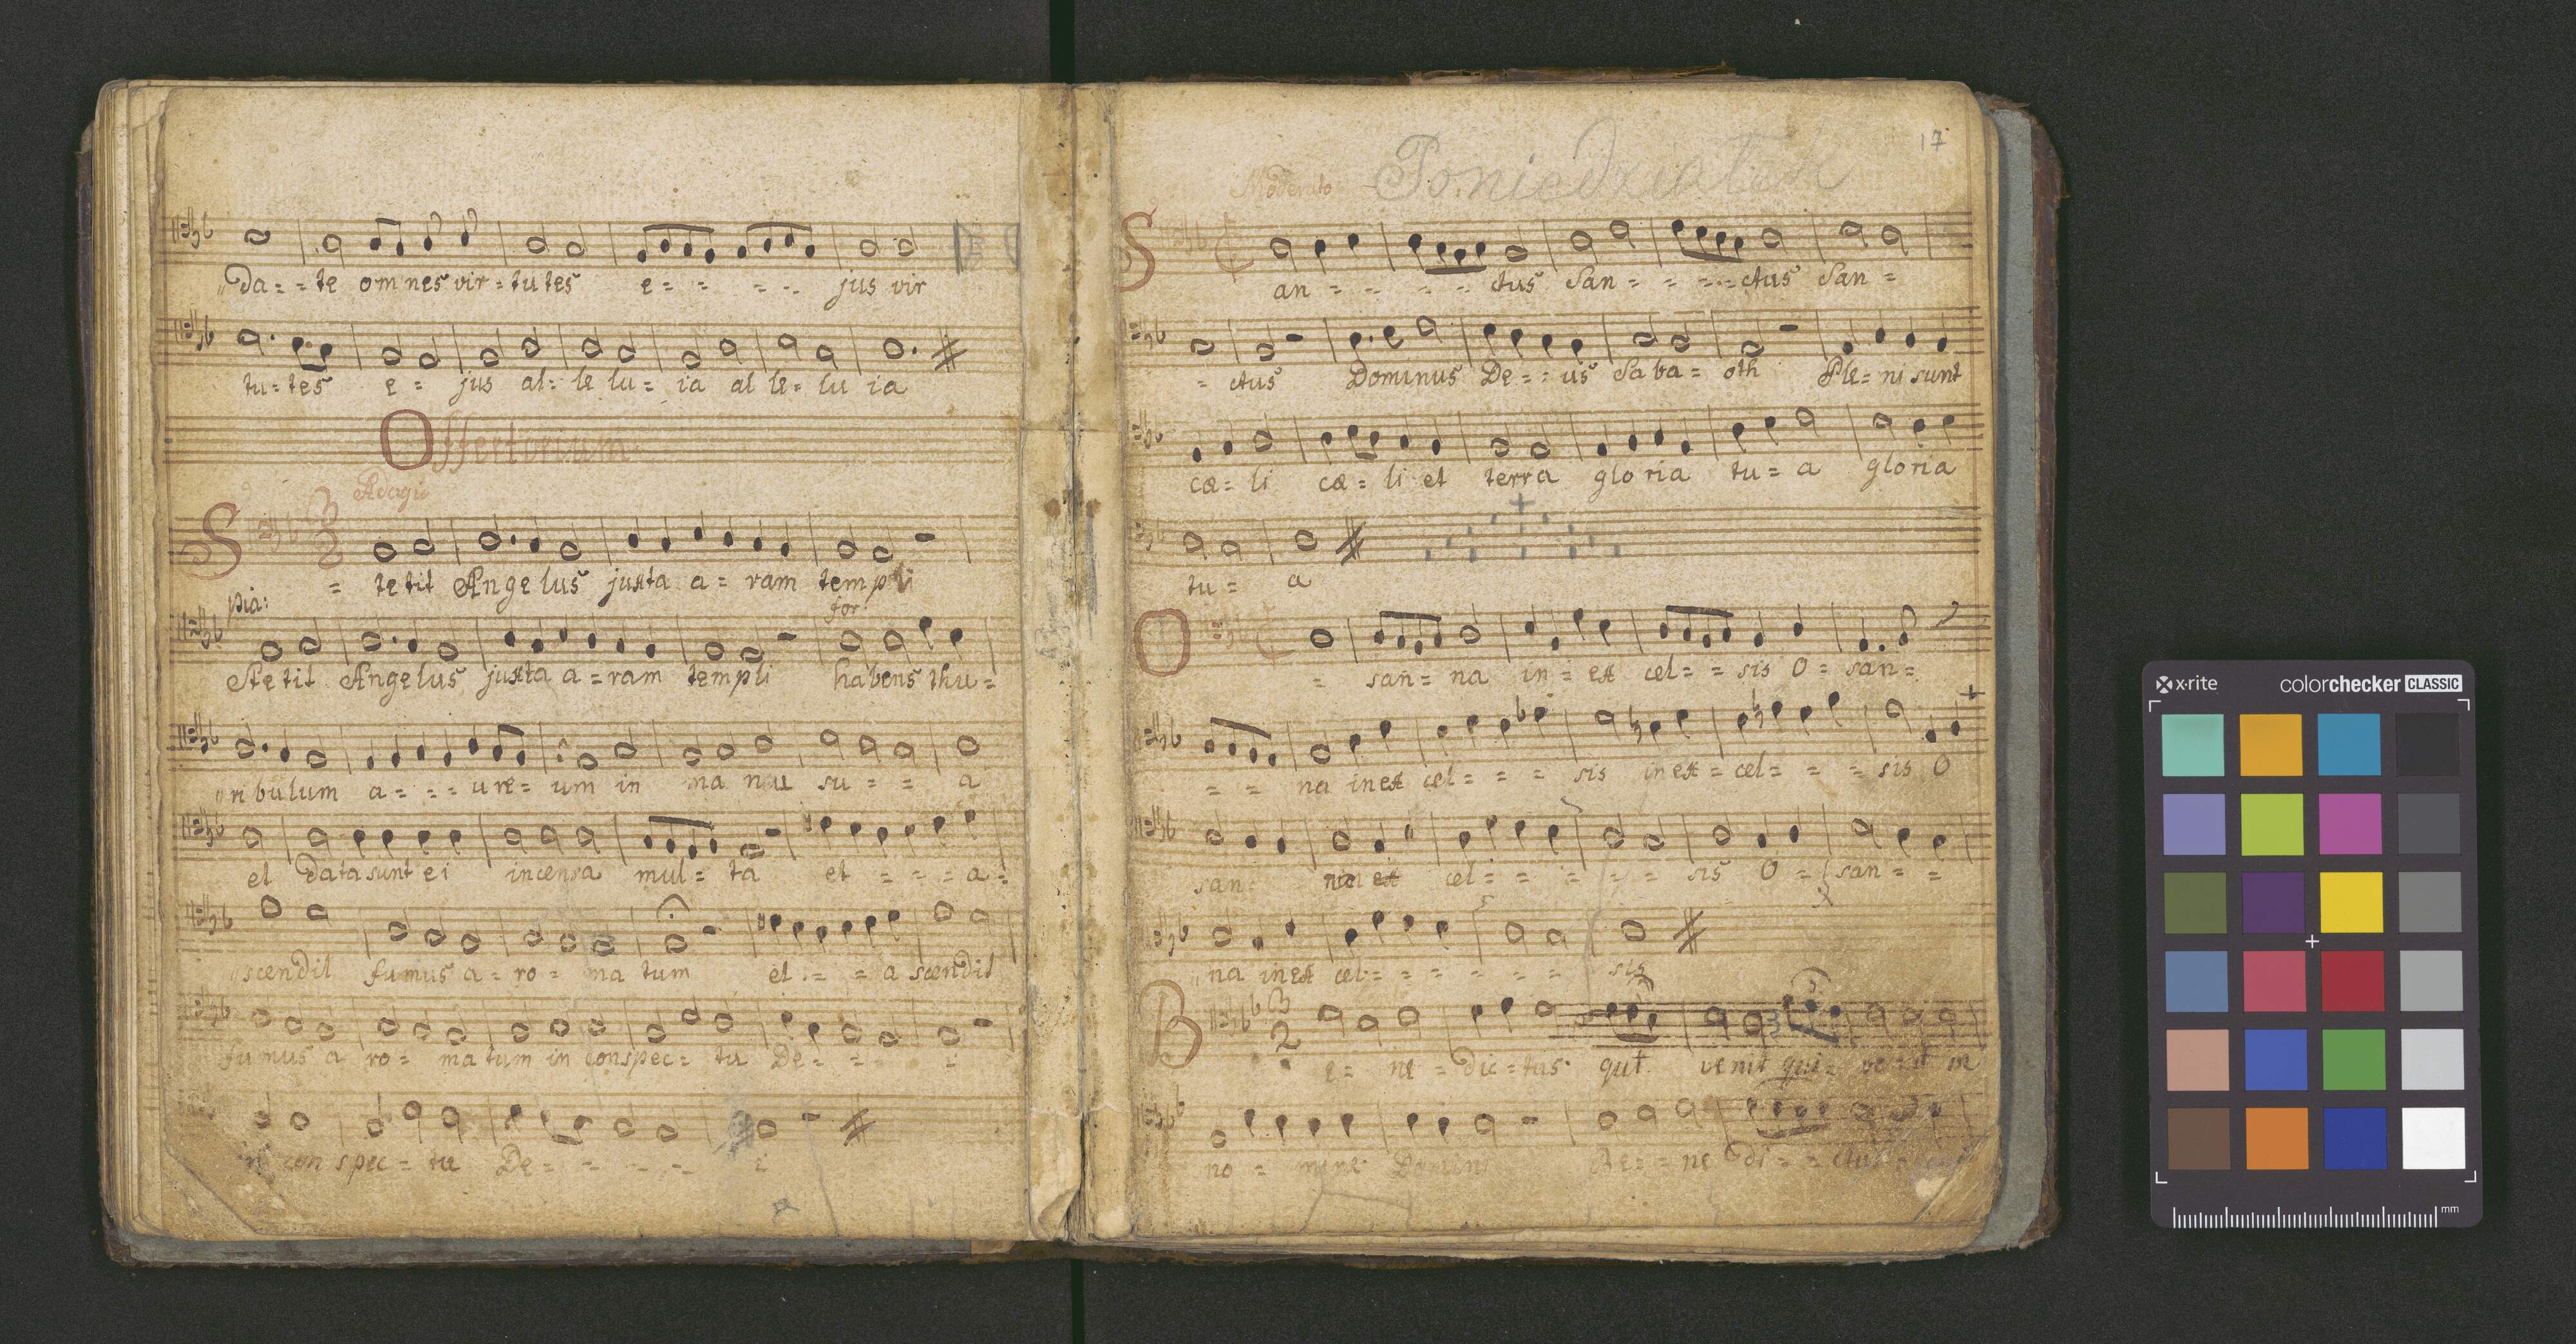 Da = = te omnes vir = tutes e = = = = jus vir
tu = tes e = jus al = le lu = ia al le = lu ia
Offertorium
Adagio
S = tetit Angelus juxta a = ram templi
pia: for:
Stetit Angelus juxta a = ram templi habens thu =
ribulum a = = = ure = um in manu su = = a
et data sunt ei incensa mul = ta et = = = a =
scendit fumus a = ro = ma tum et = = a scendit
fumus a ro = matum in conspec = tu De = = = i
in conspec = tu De = = = = i
17
Moderato Poniedziałek
S an = = = = ctus San = = = = ctus San =
= ctus Dominus De = = us Saba = oth Ple = ni sunt
cæ = li cæ = li et terra gloria tu = a gloria
tu = a
O = san = na in = ex cel = = sis O = san =
= = na in ex cel = = = sis in ex = cel = = = sis O
san = na in ex cel = = = = = sis O = san = =
na in ex cel = = = = = = sis
B 3 2 e = ne = dic = tus qui venit qui = ve = it in
no = mine Domini Be = = ne di = = ctus
x·rite colorchecker CLASSIC
mm